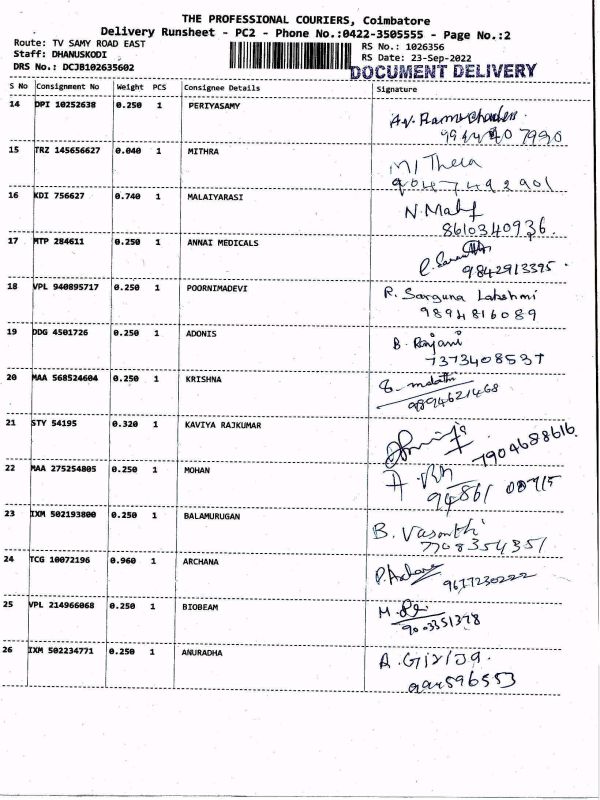 THE PROFESSIONAL COURIERS, Coimbatore
Delivery Runsheet - PC2 - Phone No.:0422-3505555 - Page No.:2
Route: TV SAMY ROAD EAST
RS No.: 1026356
Staff: DHANUSKODI
RS Date: 23-Sep-2022
DRS No.: DCJB102635602
DOCUMENT DELIVERY
S No Consignment No Weight PCS Consignee Details Signature
14 DPI 10252638 0.250 1 PERIYASAMY
15 TRZ 145656627 0.040 1 MITHRA
9047492901
16 KDI 756627 0.740 1 MALAIYARASI
8610340936.
17 MTP 284611 0.250 1 ANNAI MEDICALS
9842913395
18 VPL 940895717 0.250 1 POORNIMADEVI R. Sarguna Lakshmi
9894816089
19 DDG 4501726 0.250 1 ADONIS B. Ranjani
7373408537
20 MAA 568524604 0.250 1 KRISHNA
9894621468
21 STY 54195 0.320 1 KAVIYA RAJKUMAR
7904688616
22 MAA 275254805 0.250 1 MOHAN
23 IXM 502193800 0.250 1 BALAMURUGAN B. Vasanthi
7708354351
24 TCG 10072196 0.960 1 ARCHANA
9677230222
25 VPL 214966068 0.250 1 BIOBEAM
9003351378
26 IXM 502234771 0.250 1 ANURADHA A. Girija.